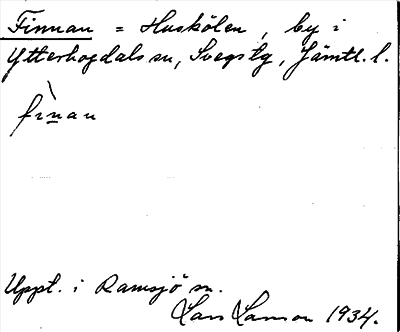 Finnan = Huskölen, by i
Ytterhogdals sn, Svegs tg, Jämtl. l.
fìnan
Uppt. i Ramsjö sn.
Lars Larsson 1934.